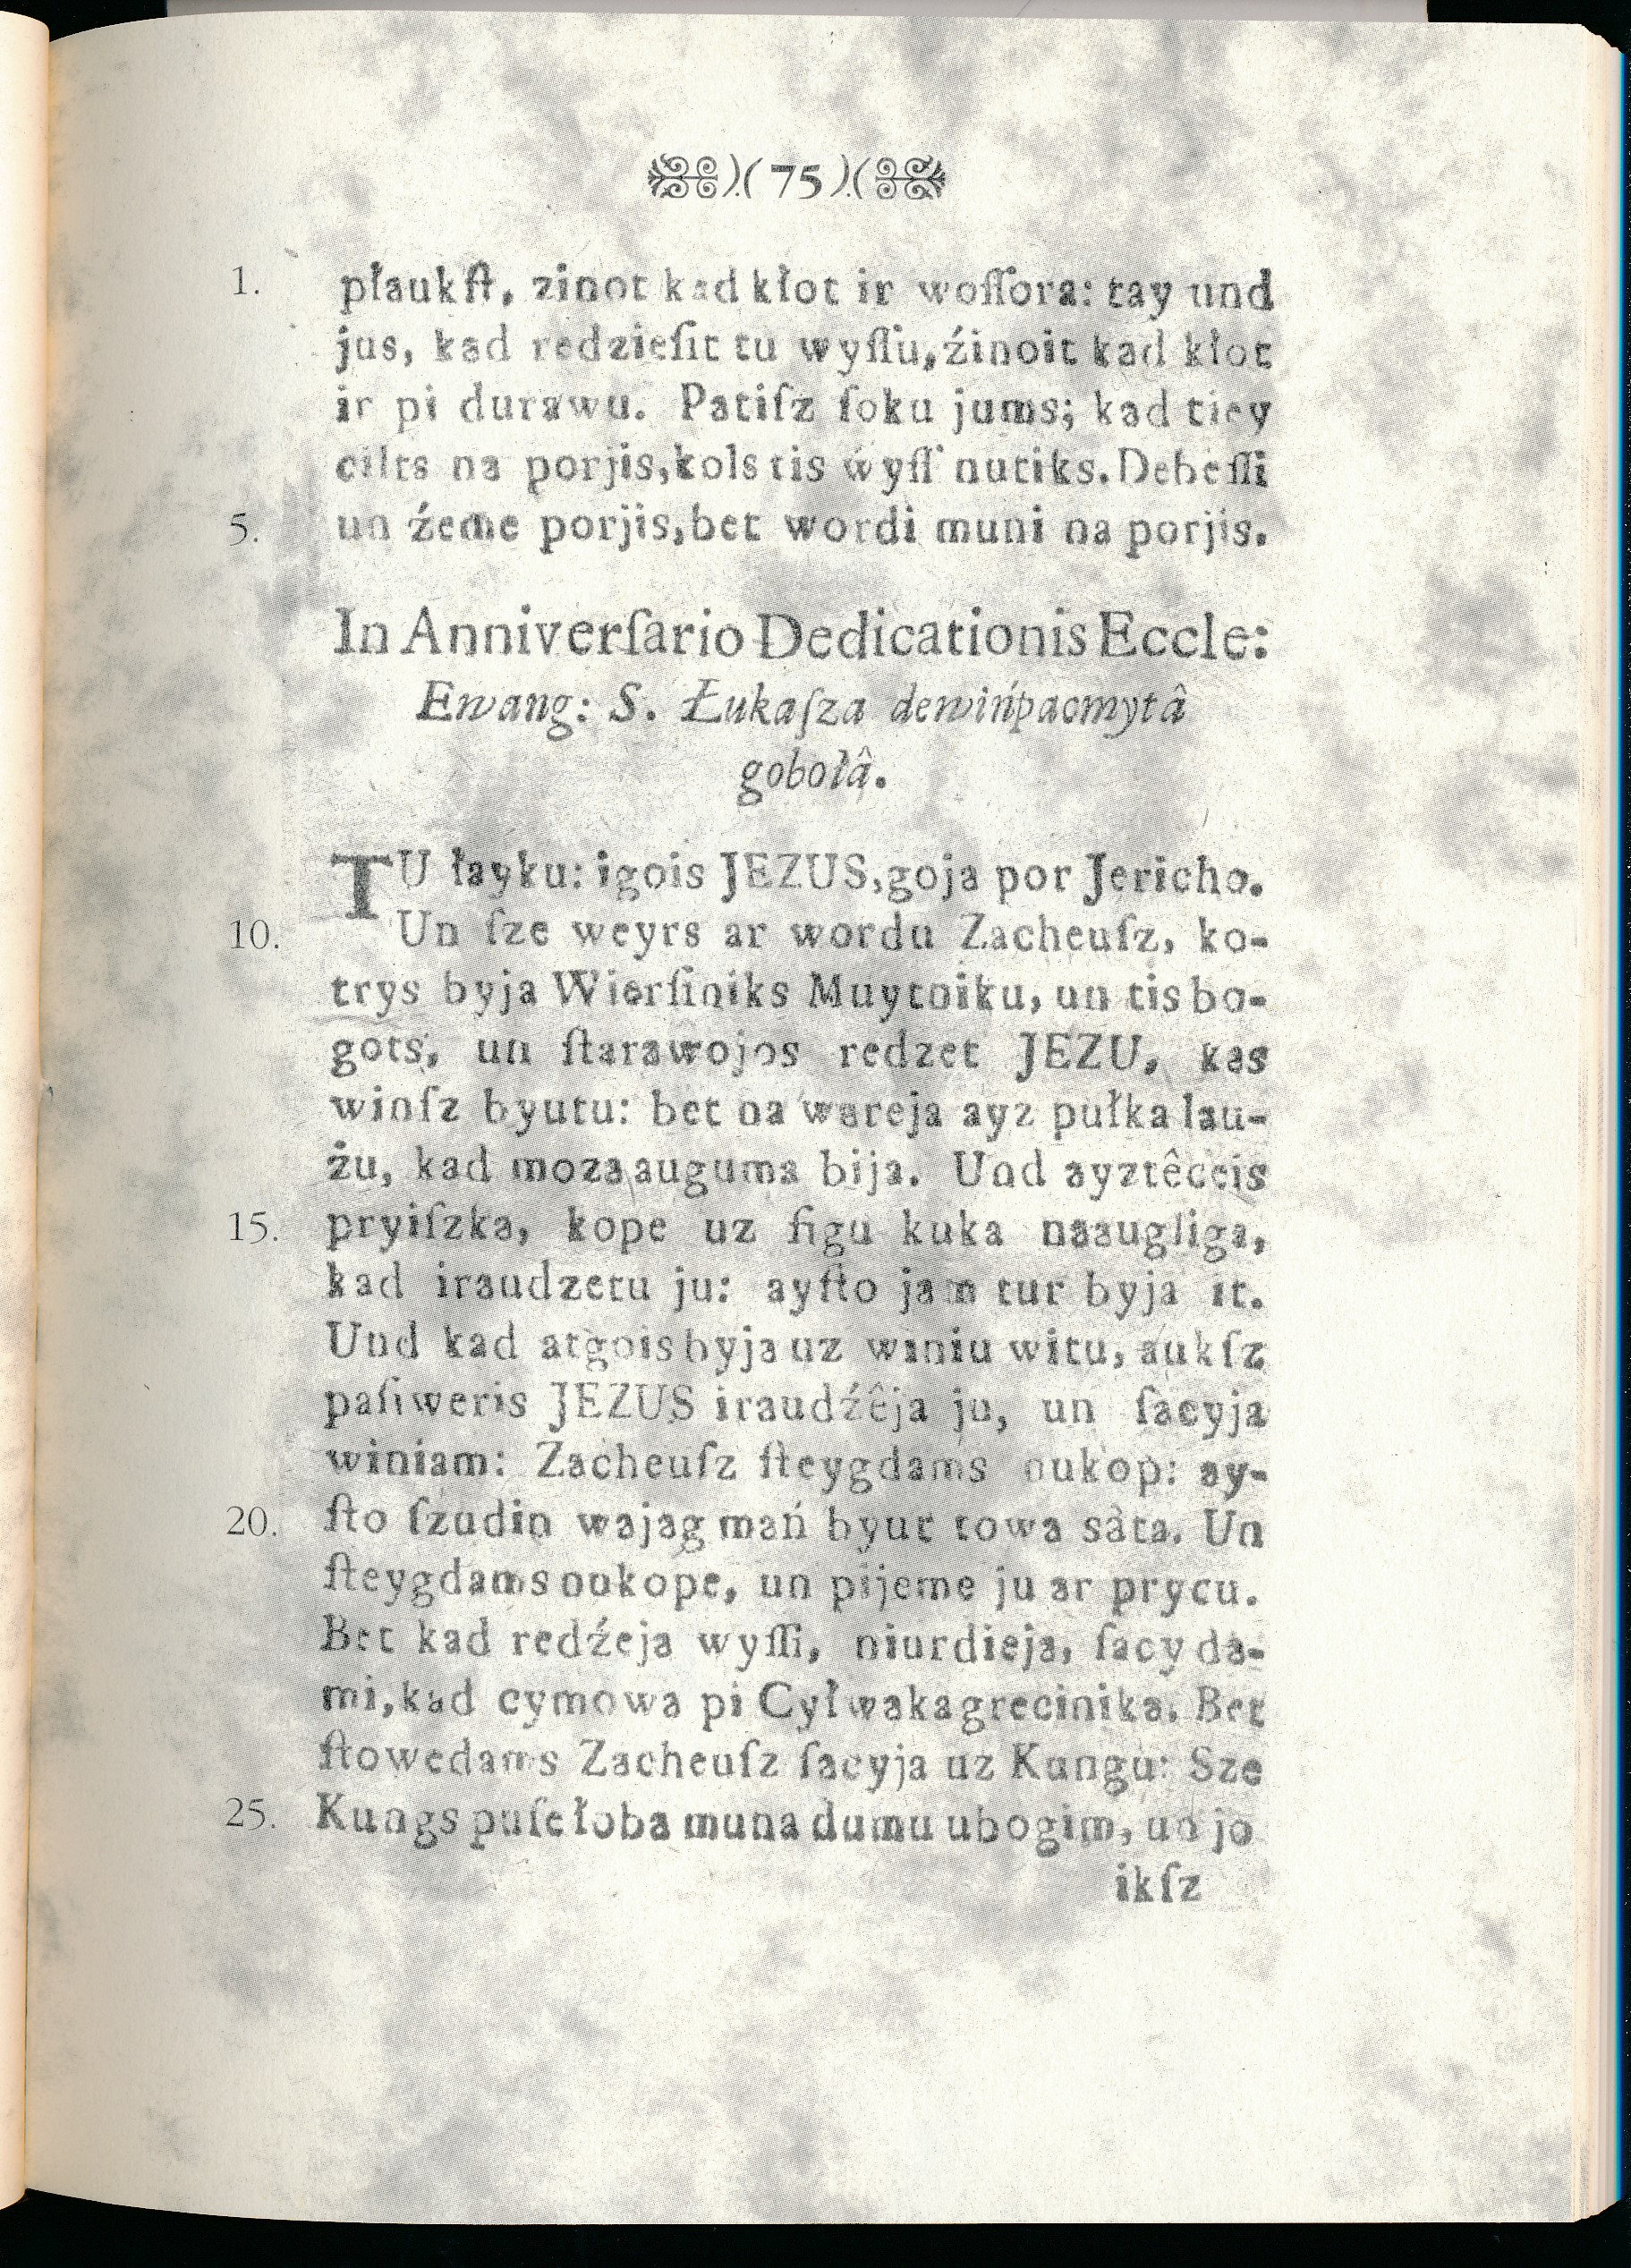 ).( 75 ).(
1. płaukſt, zinot kad kłot ir woſſora: tay und
jus, kad redzieſit tu wyſſu, źinoit kad kłot
ir pi durawu. Patiſz ſoku jums; kad tiey
cilts na porjis, kols tis wyſſ nutiks. Debeſſi
5. un źeme porjis, bet wordi muni na porjis.
In Anniverſario Dedicationis Eccle:
Ewang: S. Łukaſza dewińpacmytâ
gobołâ.
TU łayku: igois JEZUS, goja por Jericho.
10. Un ſze weyrs ar wordu Zacheuſz, ko-
trys byja Wierſiniks Muytniku, un tis bo-
gots, un ſtarawojos redzet JEZU, kas
winſz byutu: bet na wareja ayz pułka lau-
żu, kad moza auguma bija. Und ayztêccis
15. pryiſzka, kope uz figu kuka naaugliga,
kad iraudzetu ju: ayſto jam tur byja it.
Und kad atgois byja uz winiu witu, aukſz
paſiweris JEZUS iraudźêja ju, un ſacyja
winiam: Zacheuſz ſteygdams nukop: ay-
20. ſto ſzudin wajag mań byut towa sâta. Un
ſteygdams nukope, un pijeme ju ar prycu.
Bet kad redźeja wyſſi, niurdieja, ſacyda-
mi, kad cymowa pi Cyłwaka grecinika. Bet
ſtowedams Zacheuſz ſacyja uz Kungu: Sze
25. Kungs puſe łoba muna dumu ubogim, un jo
ikſz